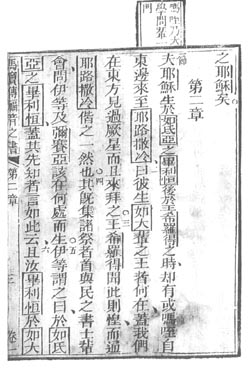 之耶穌矣
第二章
夫耶穌生於如氐亞之畢利恒後於希羅得王時却有或嗎咡自
東邊來至耶路撒冷曰彼生如大輩之王者何在蓋我們
在東方見過厥星而且來拜之王希羅得聞此則惶而通
耶路撒冷偕之一然也其既集諸祭者首與民之書士輩
會問伊等及彌賽亞該在何處而生伊等謂之曰於如氐
亞之畢利恒蓋其先知者言如此云且汝畢利恒於如大
馬竇傳福音之書 第二章 三